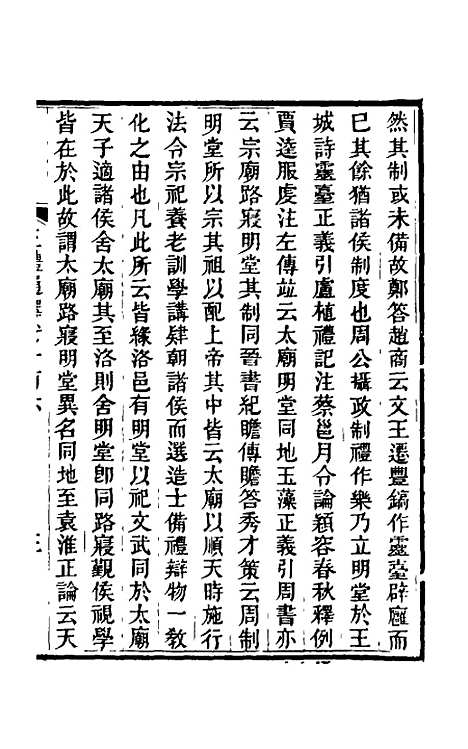 然其制或未備故鄭答趙商云文王遷豐鎬作靈臺辟廱而
已其餘猶諸侯制度也周公攝政制禮作樂乃立明堂於王
城詩靈臺正義引盧植禮記注蔡邕月令論穎容春秋釋例
賈逵服虔注左傳竝云太廟明堂同地玉藻正義引周書亦
云宗廟路寢明堂其制同晉書紀瞻傳瞻答秀才策云周制
明堂所以宗其祖以配上帝其中皆云太廟以順天時施行
法令宗祀養老訓學講肄朝諸侯而選造士備禮辯物一敎
化之由也凡此所云皆緣洛邑有明堂以祀文武同於太廟
天子適諸侯舍太廟其至洛則舍明堂卽同路寢覲侯視學
皆在於此故謂太廟路寢明堂異名同地至袁淮正論云天